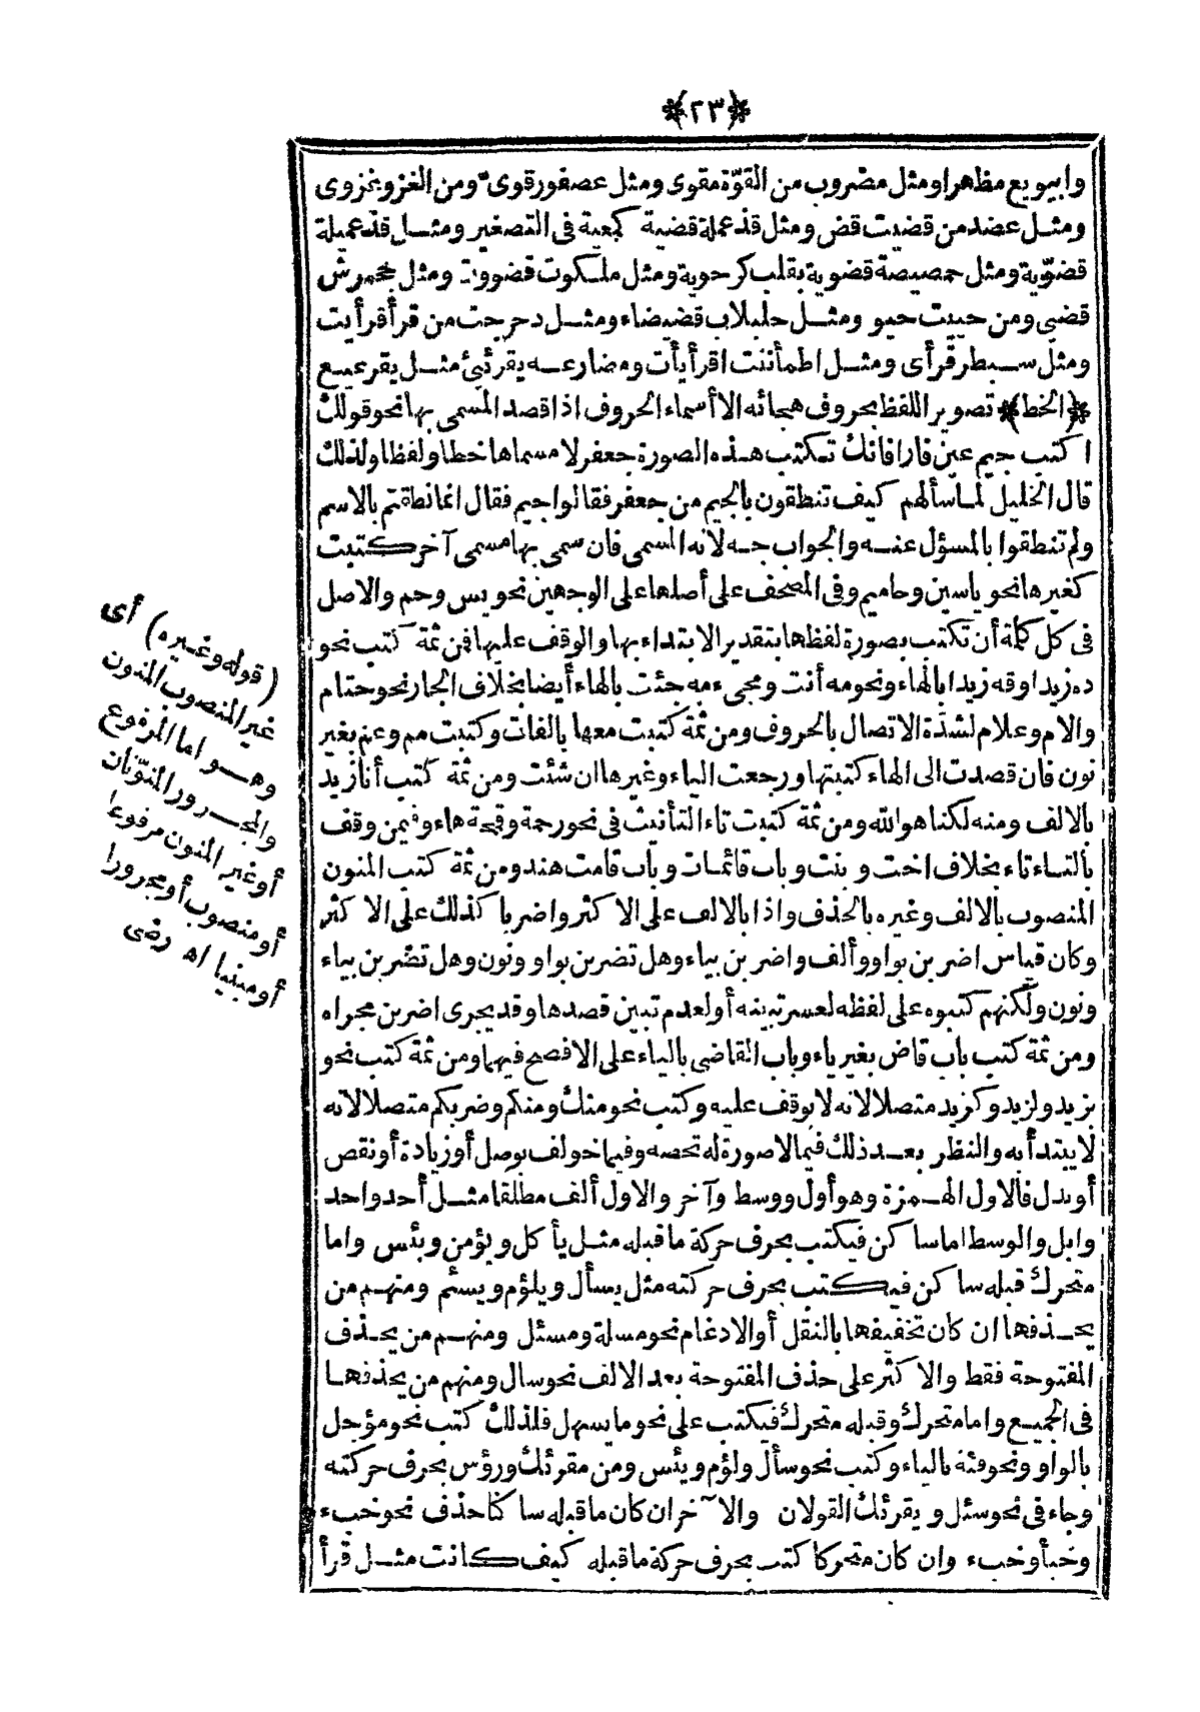 ﴿٢٣﴾
وابيويع مظهرا ومثل مضروب من القوّة مقوى ومثل عصفور قوىّ ومن الغزو غزوى
ومثل عضد من قضيت قض ومثل قذعملة قضية كمعية فى التصغير ومثل قذعميلة
قضوّية ومثل حمصيصة قضوية بقلب كرحوية ومثل ملكوت قضووت ومثل جحمرش
قضى ومن حييت حيو ومثل حلبلاب قضيضاء ومثل دحرجت من قرأ قرأيت
ومثل سبطر قرأى ومثل اطمأننت اقرأيأت ومضارعه يقرئيئ مثل يقرعيع
﴿الخط﴾ تصوير اللفظ بحروف هجائه الا أسماء الحروف اذا قصد المسمى بها نحو قولك
اكتب جيم عين فا را فانك تكتب هذه الصورة جعفر لا مسماها خطا ولفظا ولذلك
قال الخليل لما سألهم كيف تنطقون بالجيم من جعفر فقالوا جيم فقال انما نطقتم بالاسم
ولم تنطقوا بالمسؤل عنه والجواب جه لانه المسمى فان سمى بها مسمى آخر كتبت
كغيرها نحو ياسين وحاميم وفى المصحف على أصلها على الوجهين نحو يس وحم والاصل
فى كل كلمة أن تكتب بصورة لفظها بتقدير الابتداء بها والوقف عليها فمن ثمة كتب نحو
ده زيدا وقه زيدا بالهاء ونحو مه أنت ومجىء مه جئت بالهاء أيضا بخلاف الجار نحو حتام
والام وعلام لشدة الاتصال بالحروف ومن ثمة كتبت معها بالفات وكتبت مم وعم بغير
نون فان قصدت الى الهاء كتبتها ورجعت الياء وغيرها ان شئت ومن ثمة كتب أنا زيد
بالالف ومنه لكنا هو الله ومن ثمة كتبت تاء التأنيث فى نحو رحمة وقمحة هاء وفيمن وقف
بالتاء تاء بخلاف اخت وبنت وباب قائمات وباب قامت هند ومن ثمة كتب المنون
المنصوب بالالف وغيره بالحذف واذا بالالف على الاكثر واضربا كذلك على الاكثر
وكان قياس اضربن بواو وألف واضربن بياء وهل تضربن بواو ونون وهل تضربن بياء
ونون ولكنهم كتبوه على لفظه لعسر تبينه أو لعدم تبين قصدها وقد يجرى اضربن مجراه
ومن ثمة كتب باب قاض بغير ياء وباب القاضى بالياء على الافصح فيهما ومن ثمة كتب نحو
بزيد ولزيد وكزيد متصلا لانه لا يوقف عليه وكتب نحو منك ومنكم وضربكم متصلا لانه
لا يبتدأ به والنظر بعد ذلك فيما لا صورة له تخصه وفيما خولف بوصل أو زيادة أو نقص
أو بدل فالاول الهمزة وهو أول ووسط وآخر والاول ألف مطلقا مثل أحد واحد
وابل والوسط اما ساكن فيكتب بحرف حركة ما قبله مثل يأكل ويؤمن وبئس واما
متحرك قبله ساكن فيكتب بحرف حركته مثل يسأل ويلؤم ويسئم ومنهم من
يحذفها ان كان تخفيفها بالنقل أو الادغام نحو مسلة ومسئل ومنهم من يحذف
المفتوحة فقط والاكثر على حذف المفتوحة بعد الالف نحو سال ومنهم من يحذفها
فى الجميع واما متحرك وقبله متحرك فيكتب على نحو ما يسهل فلذلك كتب نحو مؤجل
بالواو ونحو فئة بالياء وكتب نحو سأل ولؤم ويئس ومن مقرئك ورؤس بحرف حركته
وجاء فى نحو سئل ويقرئك القولان والآخر ان كان ما قبله ساكنا حذف نحو خبء
وخبأ وخبء وان كان متحركا كتب بحرف حركة ما قبله كيف كانت مثل قرأ
(قوله وغيره) أى
غير المنصوب المنون
وهو اما المرفوع
والمجرور المنوّنان
أو غير المنون مرفوعا
أو منصوب أو مجرورا
أو مبنيا اه رضى